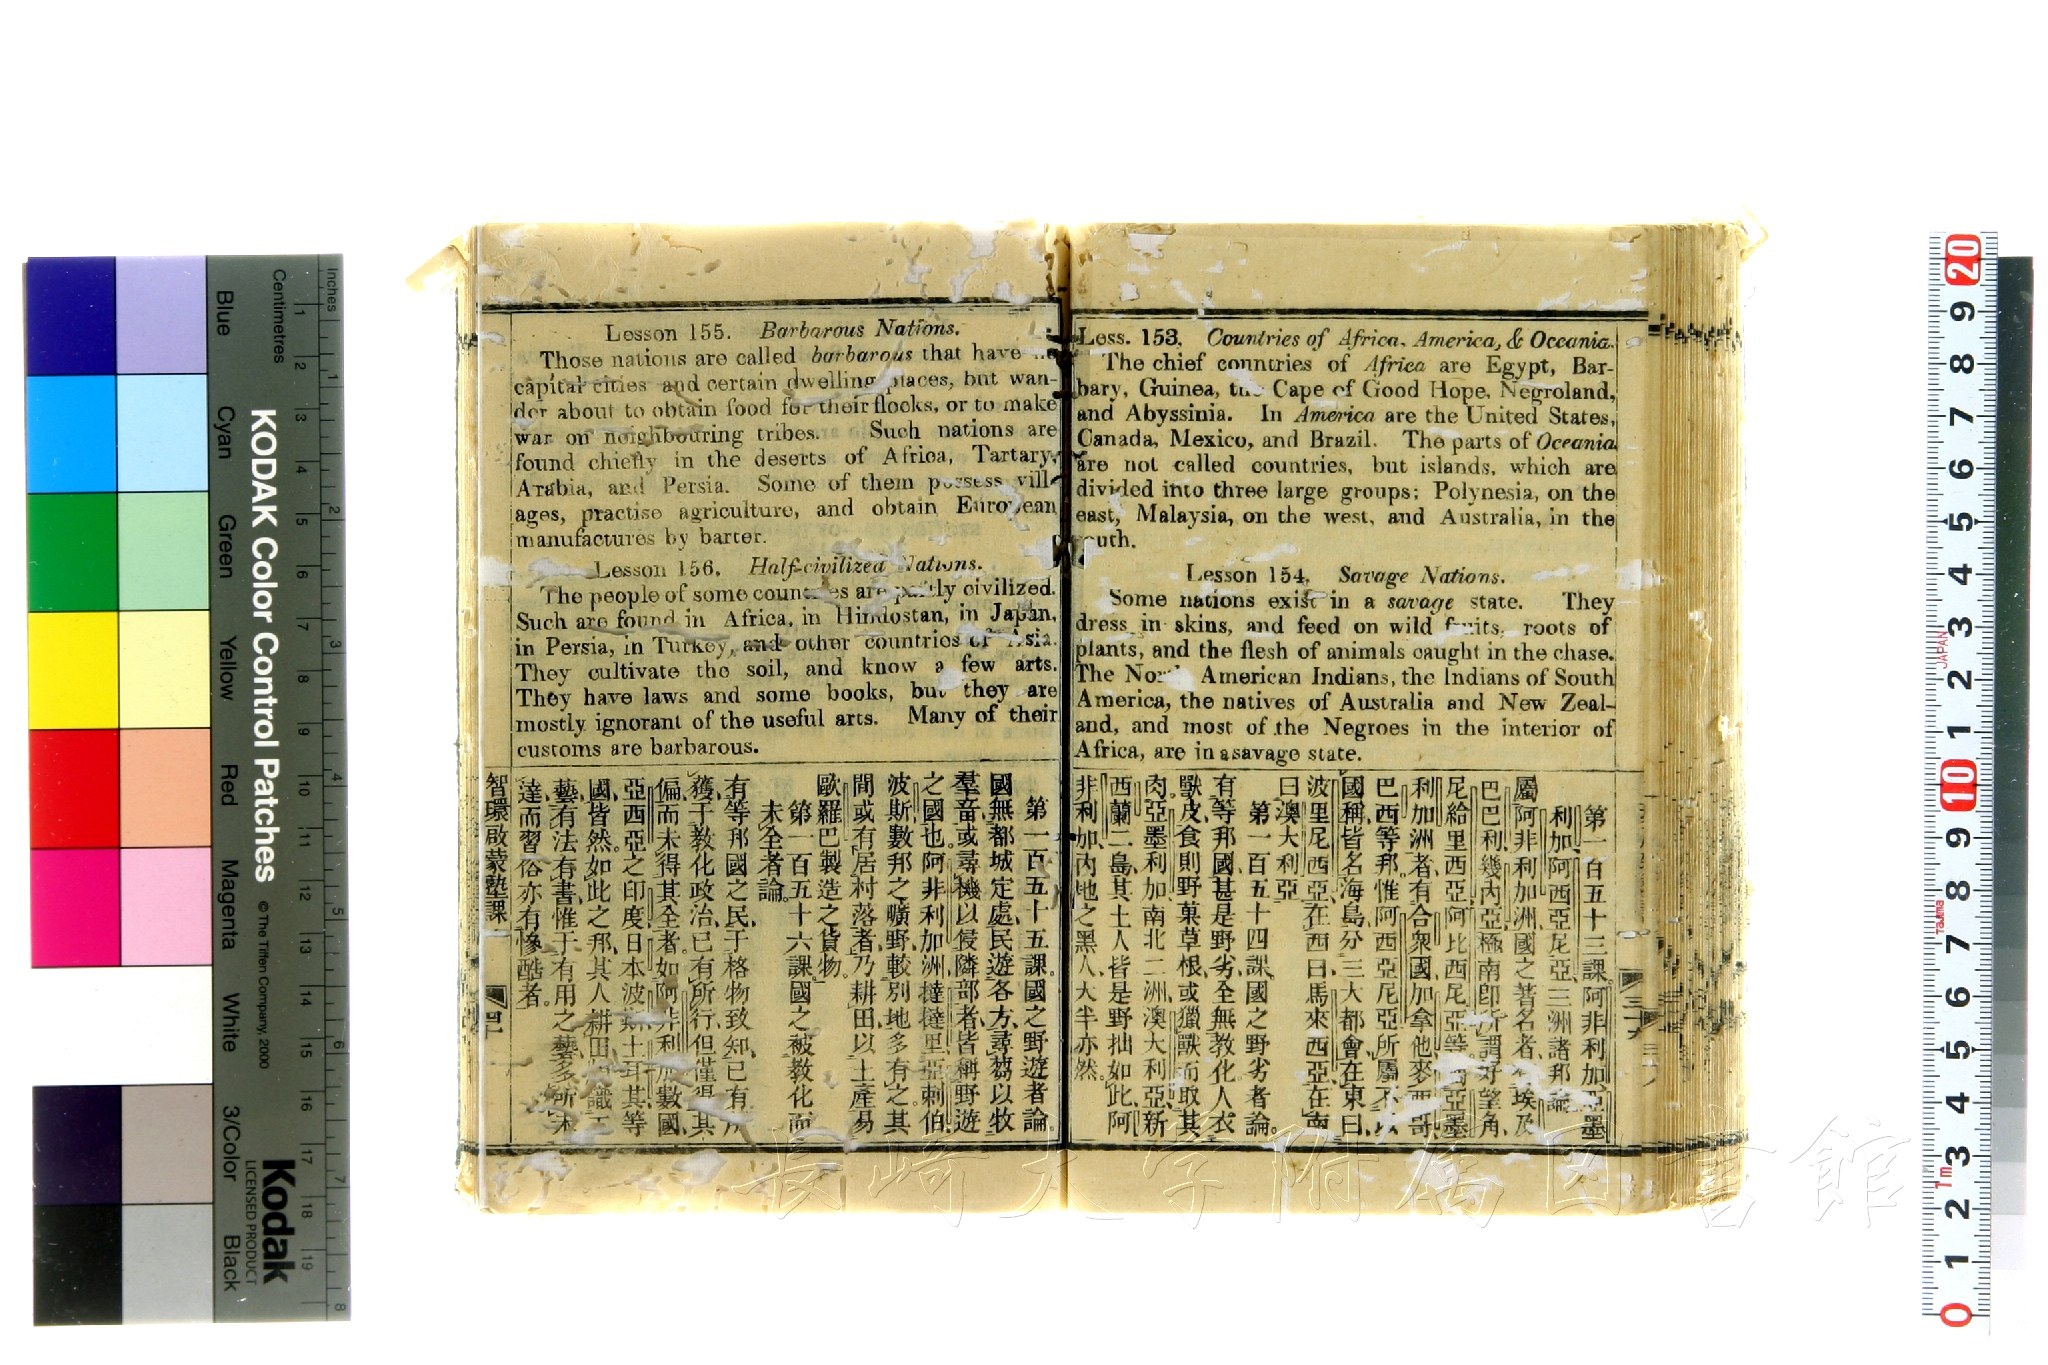 Less. 153. Countries of Africa, America, & Oceania.
The chief countries of Africa are Egypt, Bar-
bary, Guinea, the Cape of Good Hope, Negroland,
and Abyssinia. In America are the United States,
Canada, Mexico, and Brazil. The parts of Oceania
are not called countries, but islands, which are
divided into three large groups; Polynesia, on the
east, Malaysia, on the west, and Australia, in the
south.
Lesson 154. Savage Nations.
Some nations exist in a savage state. They
dress in skins, and feed on wild fruits, roots of
plants, and the flesh of animals caught in the chase.
The North American Indians, the Indians of South
America, the natives of Australia and New Zeal-
and, and most of the Negroes in the interior of
Africa, are in a savage state.
第一百五十三課。阿非利加、亞墨
利加、阿西亞尼亞、三洲諸邦論。
屬阿非利加洲國之著名者、埃及、
巴巴利、幾內亞、極南卽所謂好望角、
尼給里西亞、阿比西尼亞等、亞墨
利加洲者、有合衆國、加拿他、麥西哥、
巴西等邦、惟阿西亞尼亞所屬、不以
國稱、皆名海島、分三大都會、在東曰
波里尼西亞、在西曰馬來西亞、在南
曰澳大利亞
第一百五十四課。國之野劣者論。
有等邦國、甚是野劣、全無教化、人衣
獸皮、食則野菓草根、或獵獸而取其
肉、亞墨利加南北二洲、澳大利亞、新
西蘭二島、其土人皆是野拙如此、阿
非利加內地之黑人、大半亦然。
Lesson 155. Barbarous Nations.
Those nations are called barbarous that have
capital cities and certain dwelling places, but wan-
der about to obtain food for their flocks, or to make
war on neighbouring tribes. Such nations are
found chiefly in the deserts of Africa, Tartary,
Arabia, and Persia. Some of them possess vill-
ages, practise agriculture, and obtain European
manufactures by barter.
Lesson 156. Half-civilized Nations.
The people of some countries are partly civilized.
Such are found in Africa, in Hindostan, in Japan,
in Persia, in Turkey, and other countries of Asia.
They cultivate the soil, and know a few arts.
They have laws and some books, but they are
mostly ignorant of the useful arts. Many of their
customs are barbarous.
第一百五十五課。國之野遊者論。
國無都城定處、民遊各方、尋芻以牧
羣畜、或尋機以侵隣部者、皆稱野遊
之國也。阿非利加洲、撻撻里亞、剌伯、
波斯、數邦之曠野、較別地多有之、其
間或有居村落者、乃耕田、以土產易
歐羅巴製造之貨物。
第一百五十六課。國之被教化而
未全者論。
有等邦國之民、于格物致知、已有所
獲、于教化政治、已有所行、但僅得其
偏、而未得其全者、如阿非利加數國、
亞西亞之印度、日本、波斯、土耳其等
國皆然。如此之邦、其人耕田、識工
藝、有法、有書、惟于有用之藝、多所未
達、而習俗亦有慘酷者。
智環啟蒙塾課
KODAK Color Control Patches
© The Tiffen Company, 2000
Kodak
LICENSED PRODUCT
Inches
Centimetres
Blue
Cyan
Green
Yellow
Red
Magenta
White
3/Color
Black
JAPAN
Tajima
1m
長崎大学附属図書館